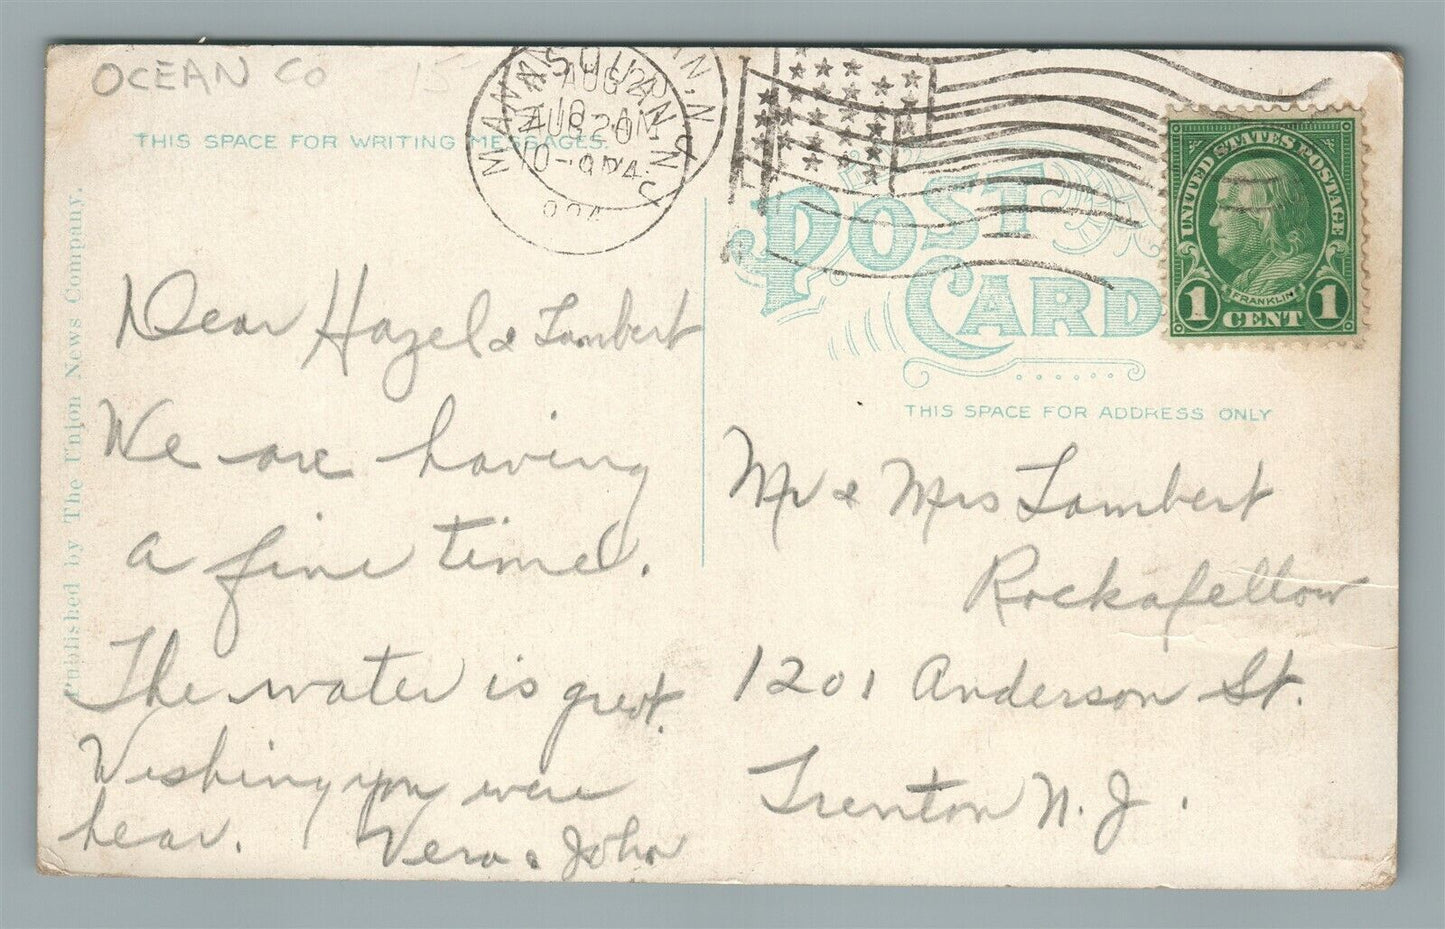 OCEAN CO 15-
THIS SPACE FOR WRITING MESSAGES.
MANASQUAN, N.J.
AUG 20
10-AM
1924
UNITED STATES POSTAGE
FRANKLIN
1 CENT 1
POST
CARD
THIS SPACE FOR ADDRESS ONLY
Published by The Union News Company.
Dear Hazel & Lambert
We are having
a fine time.
The water is great.
Wishing you were
hear. Vera & John
Mr & Mrs Lambert
Rockafellow
1201 Anderson St.
Trenton N.J.